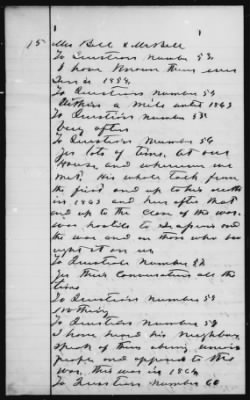 15 Mr Bell & Mr Bell
To Questions Number 52
I have known them ever
Since in 1854
To Question number 54
Within a mile until 1863
To Question number 55
Very often
To Question Number 56
Yes lots of times, at our
House and wherever we
met, his whole talk from
the first and up to his death
in 1863 and hers after that
and up to the close of the war
was hostile to
the war and on those who
brought it on us
To Question Number 57
Yes their Conversations all the
time
To Question Number 58
nothing
To Question Number 59
I have heard his neighbors
speak of them as being union
people and opposed to the
war, this was in 1864
To Question Number 60